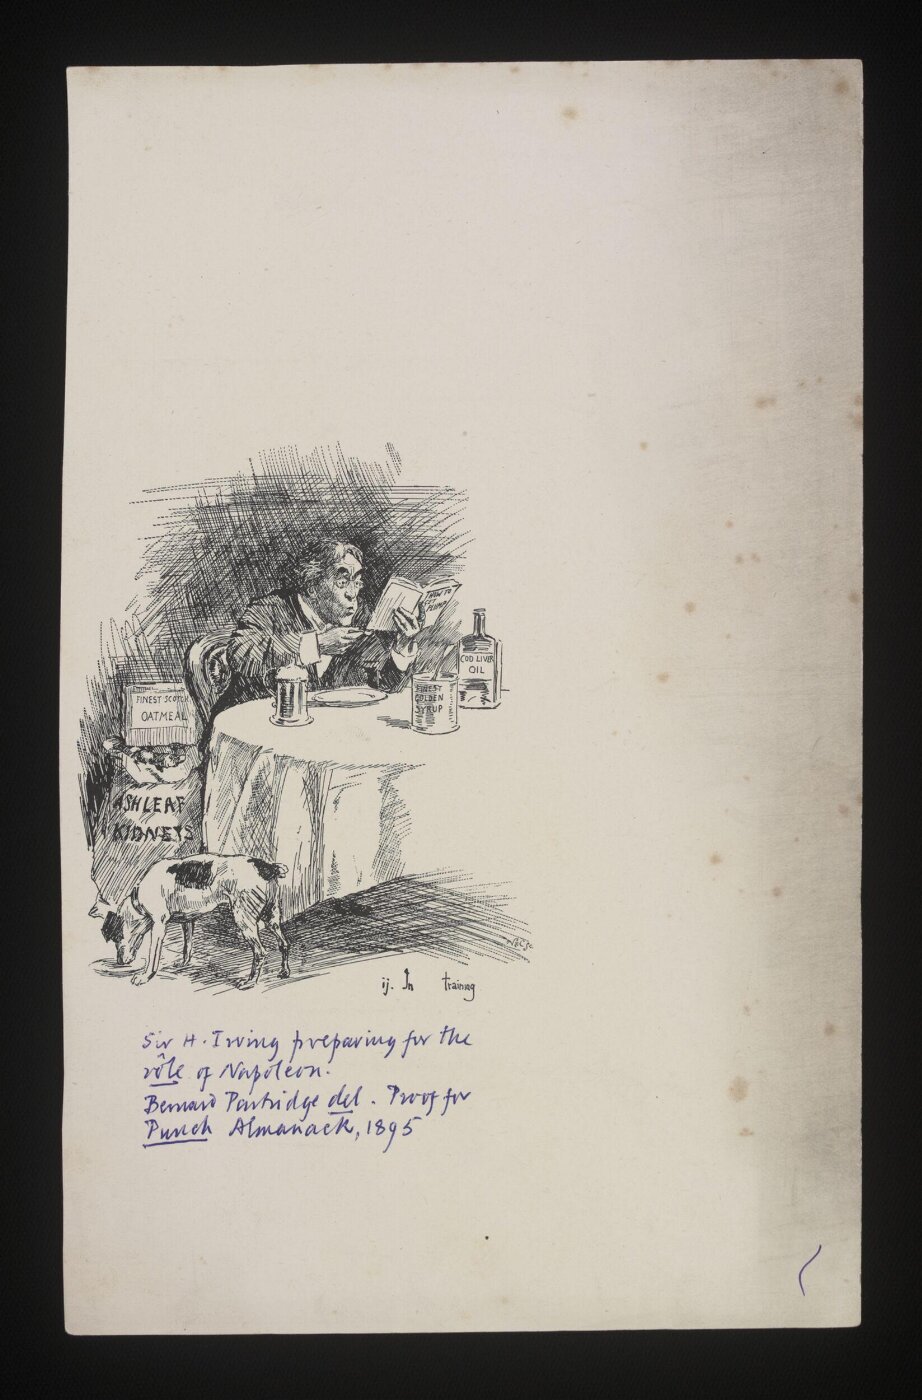 HOW TO
COD LIVER
OIL
FINEST
GOLDEN
SYRUP
FINEST SCOTCH
OATMEAL
ASHLEAF
KIDNEYS
ij. In training
Sir H. Irving preparing for the
rôle of Napoleon.
Bernard Partridge del. Proof for
Punch Almanack, 1895